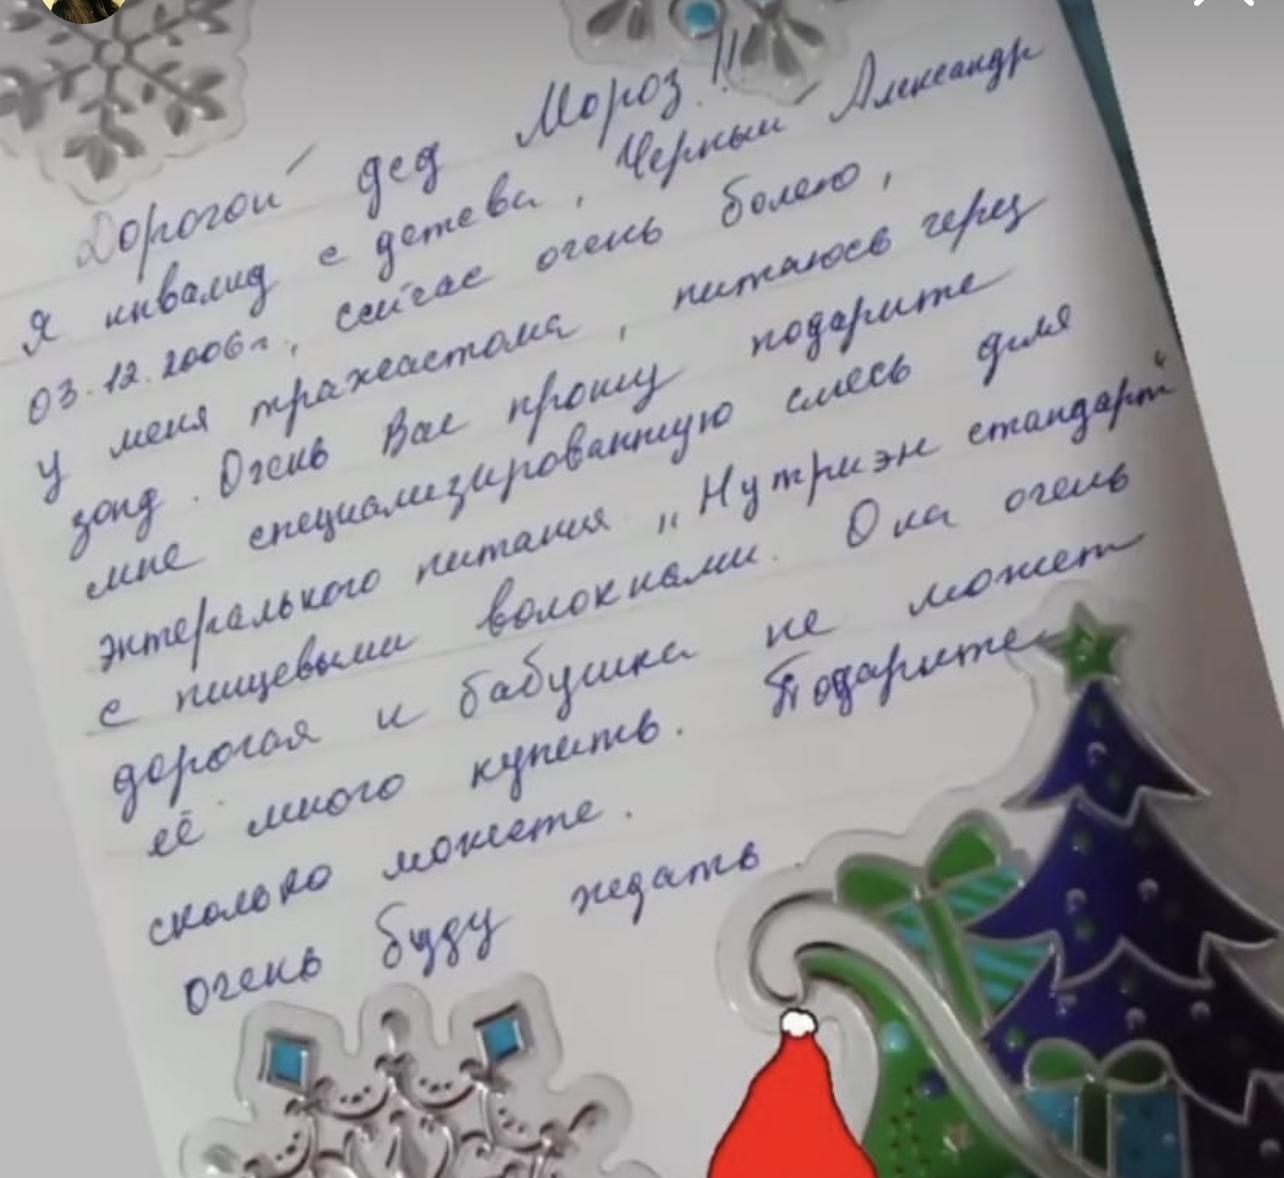 Дорогой дед Мороз!!
Я инвалид с детсва, Черный Александр
03.12.2006г., сейчас очень болею,
у меня трахеастома, питаюсь через
зонд. Очень Вас прошу подарите
мне специализированную смесь для
энтерального питания „Нутриэн стандарт"
с пищевыми волокнами. Она очень
дорогая и бабушка не может
её много купить. Подарите
сколько можете.
очень буду ждать.